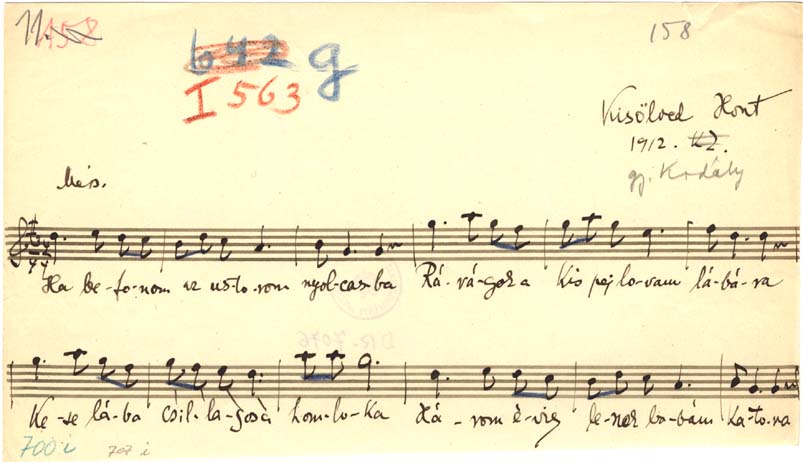 158
158
642 g
I 563
Kisölved Hont
1912.
gy. Kodály
Ha be-fo-nom az us-to-rom nyol-cas-ba Rá-vá-gok a Kis pej lo-vam lá-bá-ra
Ke-se lá-ba csil-la-gos a hom-lo-ka Há-rom é-vig le-nek ba-bám ka-to-na
700 i 707 i